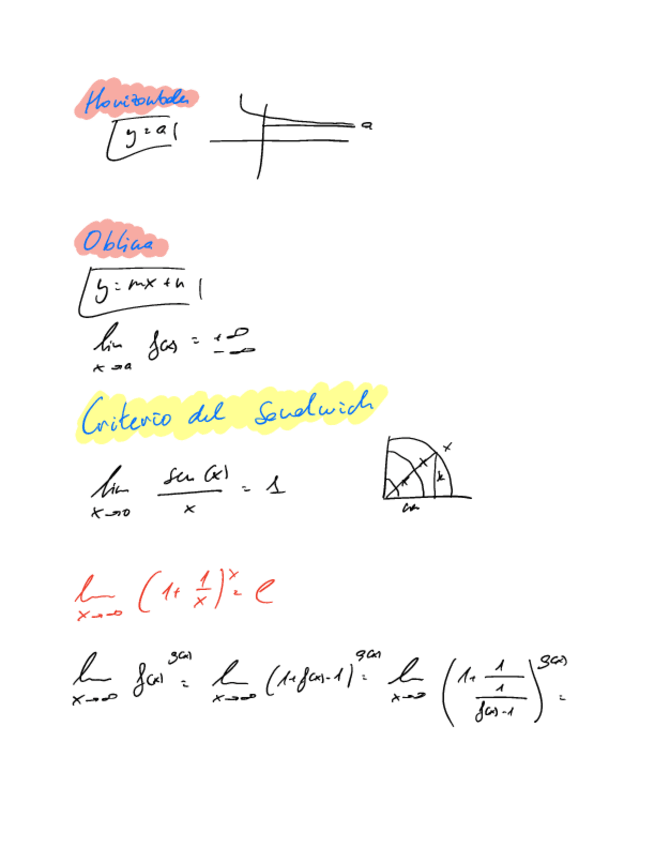 Horizontales
y = a
a
Oblicua
y = mx + n
lim x→a f(x) = +∞ −∞
Criterio del Sandwich
lim x→0 sen(x)/x = 1
x
lim x→∞ (1 + 1/x)^x = e
lim x→∞ f(x)^g(x) = lim x→∞ (1 + f(x) - 1)^g(x) = lim x→∞ (1 + 1/(1/(f(x) - 1)))^g(x) =